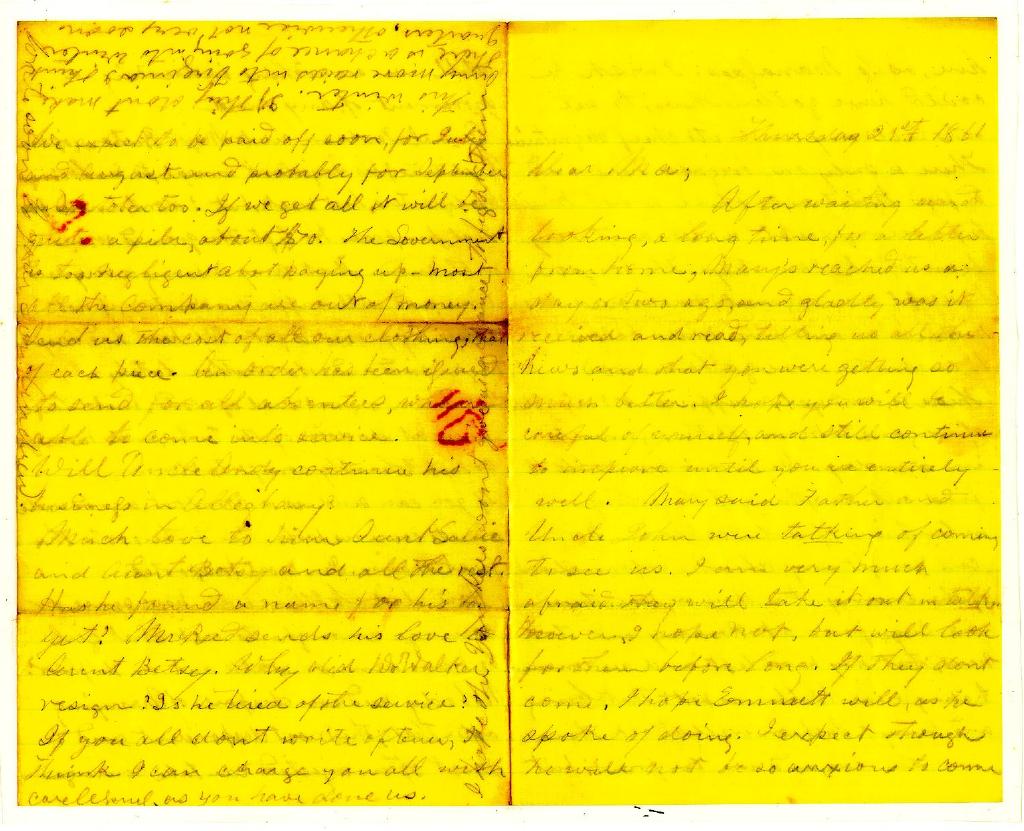 Thursday 21st 1861
Dear Ma,
After waiting and
looking, a long time, for a letter
from home, Mary's reached us a
day or two ago, and gladly was it
received and read, telling us
news and that you were getting so
much better. I hope you will be
careful of yourself and still continue
to improve until you are entirely
well. Mary said Father and
Uncle John were talking of coming
to see us. I am very much
afraid they will take it out in talk,
however, I hope not, but will look
for them before long. If they dont
come, I hope Emmett will, as he
spoke of doing. I expect though
he will not be so anxious to come
We expect to be paid off soon, for July
and August and probably for September
too. If we get all it will be
quite a pile, about $70. The Government
is too negligent abot paying up - most
all the company are out of money.
Send us the cost of all our clothing, that
of each piece. An order has been issued
to send for all absentees, who are
able to come into service.
Will Uncle Andy continue his
business in Alleghany?
Much love to him Aunt Sallie
and Aunt Betsy and all the rest.
Has he found a name for his
yet? McKee sends his love to
Aunt Betsy. Why did Walker
resign? Is he tired of the service?
If you all dont write oftener, I
think I can charge you all with
carelesness, as you have done us.
this winter. If they dont make
any more raids into Virginia I think
there is a chance of going into winter
quarters, otherwise not very soon